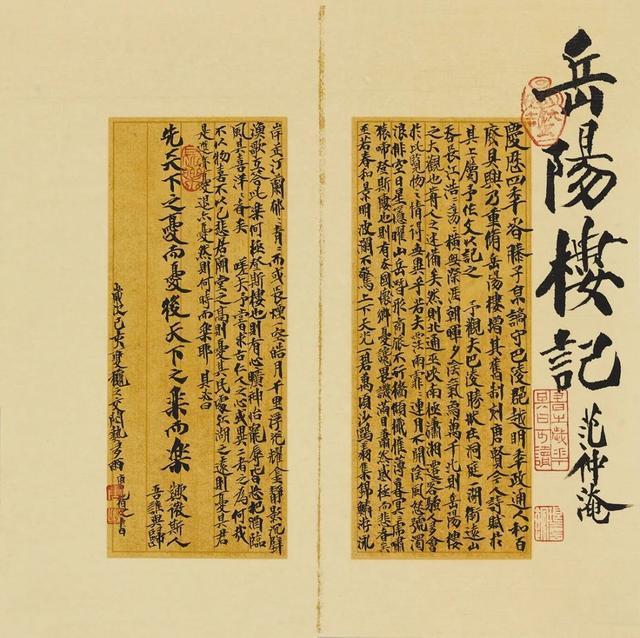 岳陽樓記
范仲淹
慶歷四年春滕子京謫守巴陵郡越明年政通人和百
廢具興乃重脩岳陽樓增其舊制刻唐賢今人詩賦於
其上屬予作文以記之 予觀夫巴陵勝狀在洞庭湖銜遠山
吞長江浩浩湯湯橫無際涯朝暉夕陰氣象萬千此則岳陽樓
之大觀也前人之述備矣然則北通巫峽南極瀟湘遷客騷人多會
於此覽物之情得無異乎若夫霪雨霏霏連月不開陰風怒號濁
浪排空日星隱曜山岳潛形商旅不行檣傾楫摧薄暮冥冥虎嘯
猿啼登斯樓也則有去國懷鄉憂讒畏譏滿目蕭然感極而悲者矣
至若春和景明波瀾不驚上下天光一碧萬頃沙鷗翔集錦鱗游泳
岸芷汀蘭郁郁青青而或長煙一空皓月千里浮光耀金靜影沉璧
漁歌互答此樂何極登斯樓也則有心曠神怡寵辱皆忘把酒臨
風其喜洋洋者矣 嗟夫予嘗求古仁人之心或異二者之為何哉
不以物喜不以己悲居廟堂之高則憂其民處江湖之遠則憂其君
是進亦憂退亦憂然則何時而樂耶 其必曰
先天下之憂而憂後天下之樂而樂 歟微斯人
吾誰與歸